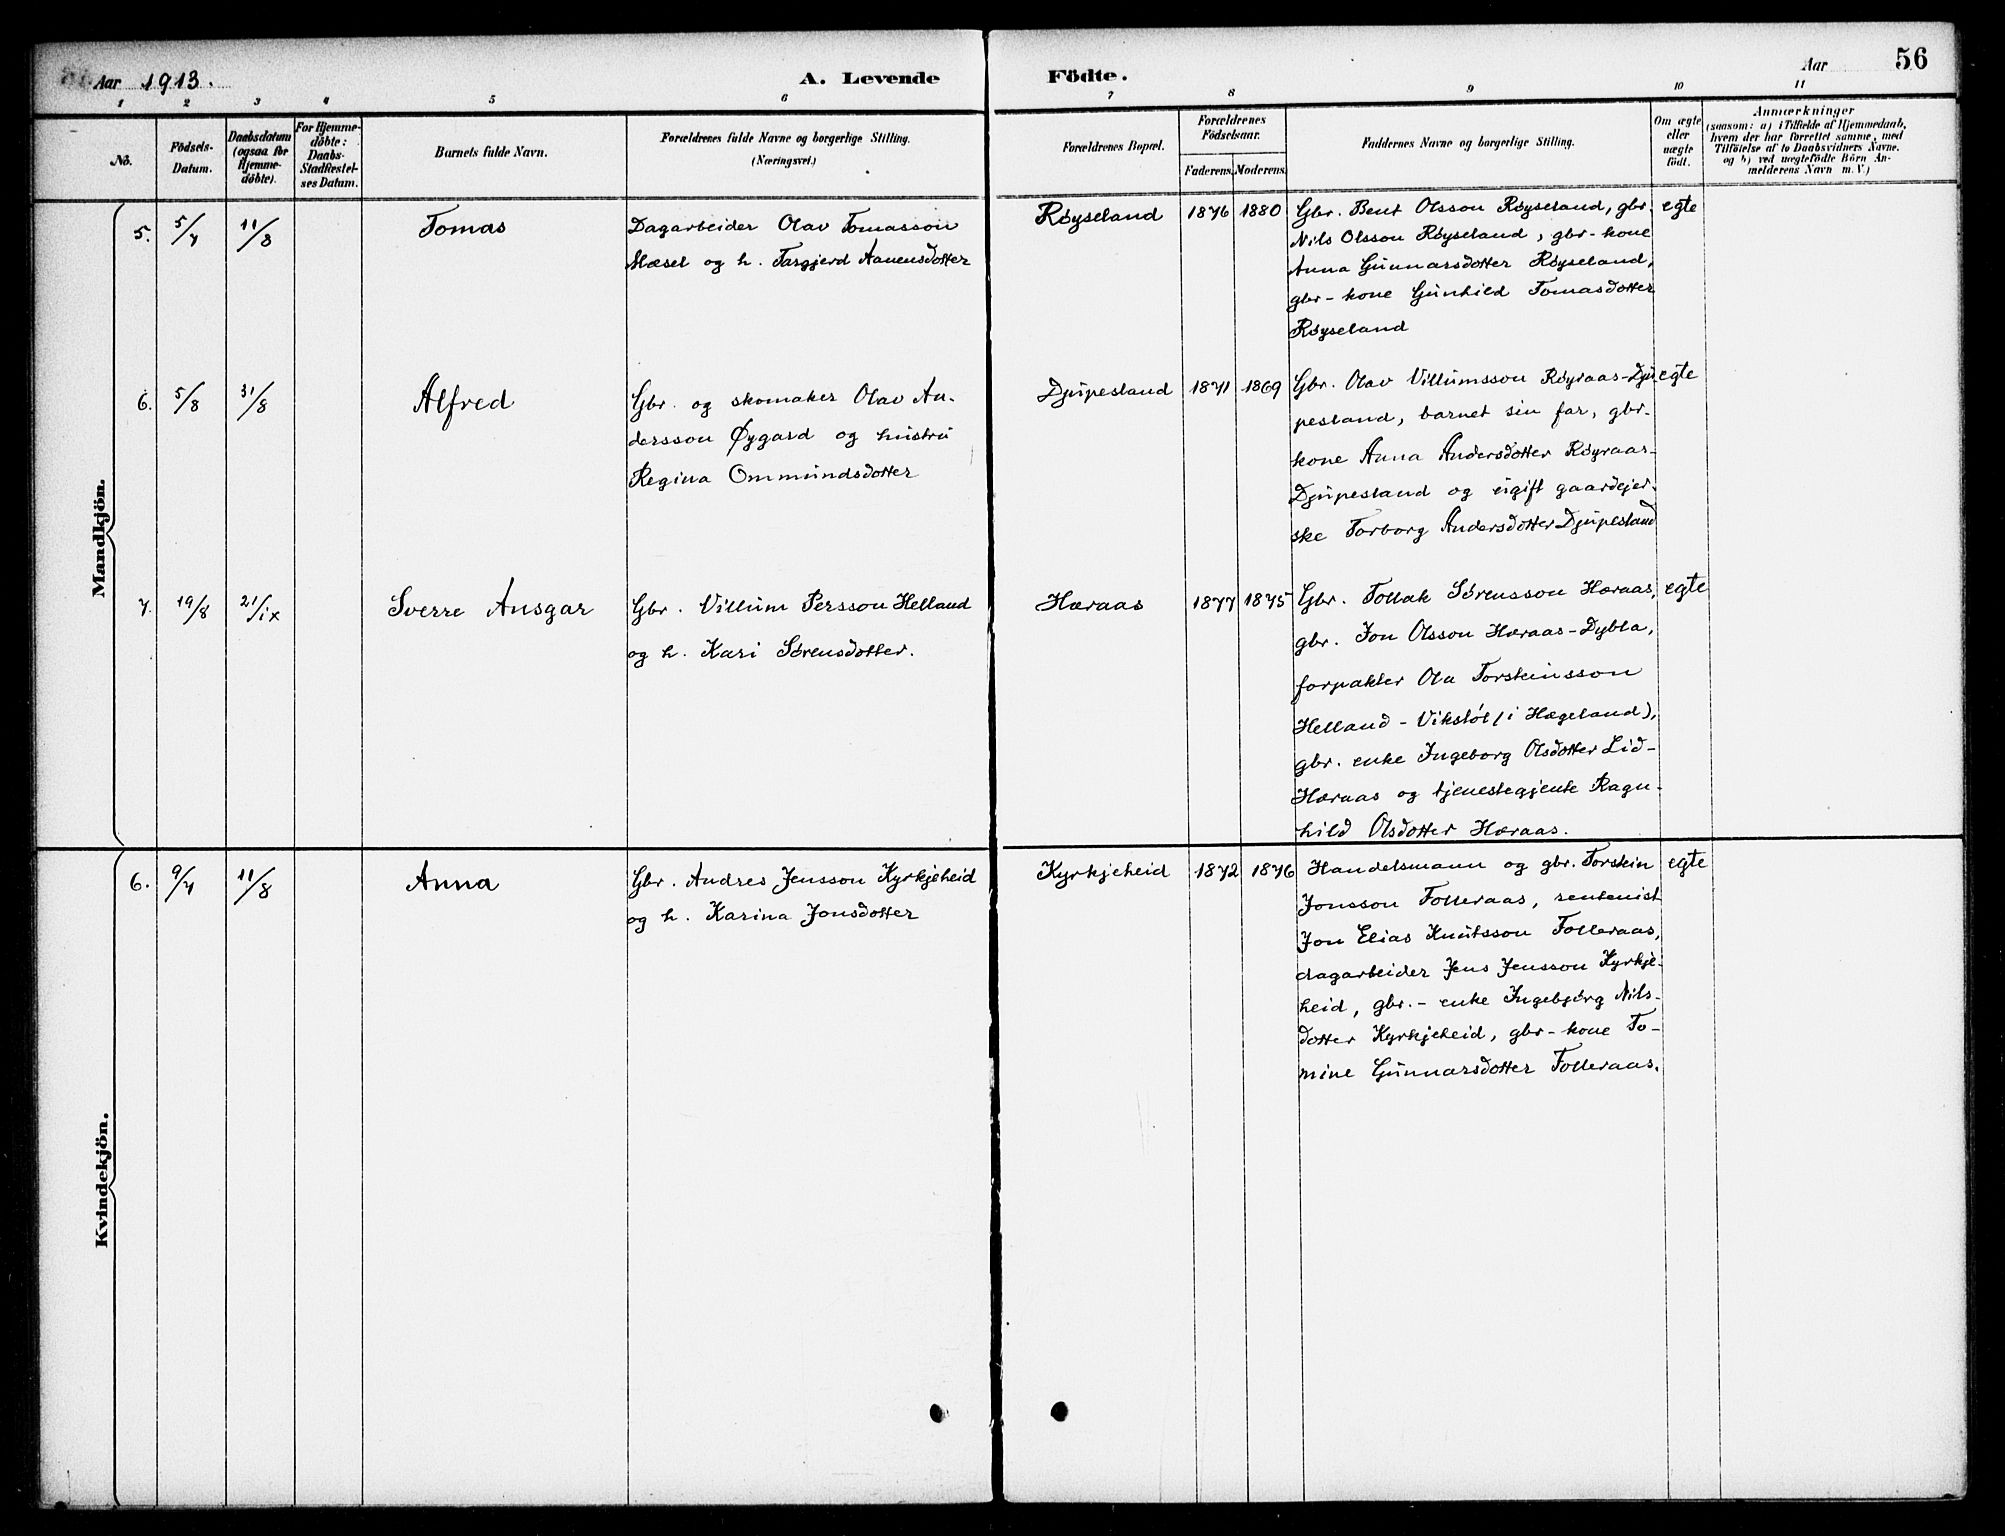 Aar 1913.
A. Levende
Födte.
Aar
56
1 2 3 4 5 6 7 8 9 10 11
No.
Födsels-
Datum.
Daabsdatum
(ogsaa for
Hjemme-
döbte).
For Hjemme-
döbte:
Daabs-
Stadfæstel-
ses Datum.
Barnets fulde Navn.
Forældrenes fulde Navne og borgerlige Stilling.
(Næringsvei.)
Forældrenes Bopæl.
Forældrenes
Födselsaar.
Faderens. Moderens.
Faddernes Navne og borgerlige Stilling.
Om ægte
eller
uægte
födt.
Anmærkninger
(saasom: a) i Tilfælde af Hjemmedaab,
hvem der har forrettet samme, med
Tilföielse af to Daabsvidners Navne.
og b) ved uægtefödte Börn An-
melderens Navn m. V.)
Mandkjön.
5. 5/7 11/8 Tomas
Dagarbeider Olav Tomasson
Mæsel og h. Targjerd Aanensdotter
Røyseland 1876 1880
Gbr. Bent Olsson Røyseland, gbr.
Nils Olsson Røyseland, gbr-kone
Anna Gunnarsdotter Røyseland,
gbr-kone Gunhild Tomasdotter
Røyseland
egte
6. 5/8 31/8 Alfred
Gbr. og skomaker Olav An-
dersson Øygard og hustru
Regina Ommundsdotter
Djupesland 1871 1869
Gbr. Olav Villumsson Røyraas-Dju-
pesland, barnet sin far, gbr-
kone Anna Andersdotter Røyraas-
Djupesland og ugift gaardejer-
ske Torborg Andersdotter Djupesland
egte
7. 19/8 21/ix Sverre Ansgar
Gbr. Villum Persson Helland
og h. Kari Sørensdotter.
Hæraas 1877 1875
Gbr. Tollak Sørensson Hæraas,
gbr. Jon Olsson Hæraas-Dybla,
forpakter Ola Torsteinsson
Helland-Vikstøl (i Hægeland),
gbr. enke Ingeborg Olsdotter Lid-
Hæraas og tjenestegjente Ragn-
hild Olsdotter Hæraas.
egte
Kvindekjön.
6. 9/7 11/8 Anna
Gbr. Andres Jensson Kyrkjeheid
og h. Karina Jonsdotter
Kyrkjeheid 1872 1876
Handelsmann og gbr. Torstein
Jonsson Tolleraas, rentenist
Jon Elias Knutsson Tolleraas,
dagarbeider Jens Jensson Kyrkje-
heid, gbr.-enke Ingebjørg Nils-
dotter Kyrkjeheid, gbr-kone To-
mine Gunnarsdotter Tolleraas.
egte